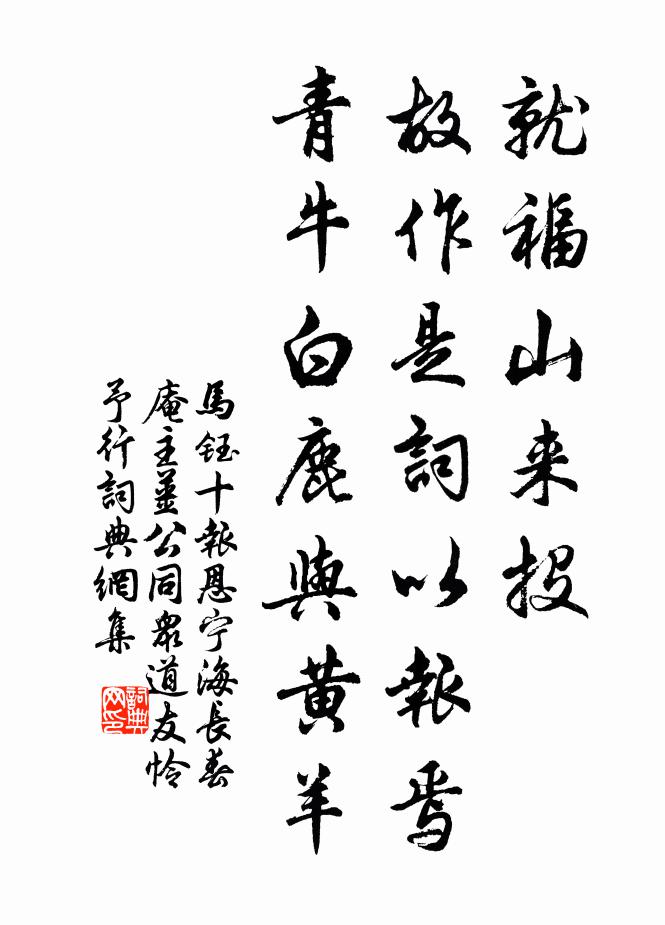 就福山来投
故作是詞以報焉
青牛白鹿與黃羊
馬鈺十報恩宁海長春
庵主薑公同衆道友怜
予行詞典網集
詞典网印